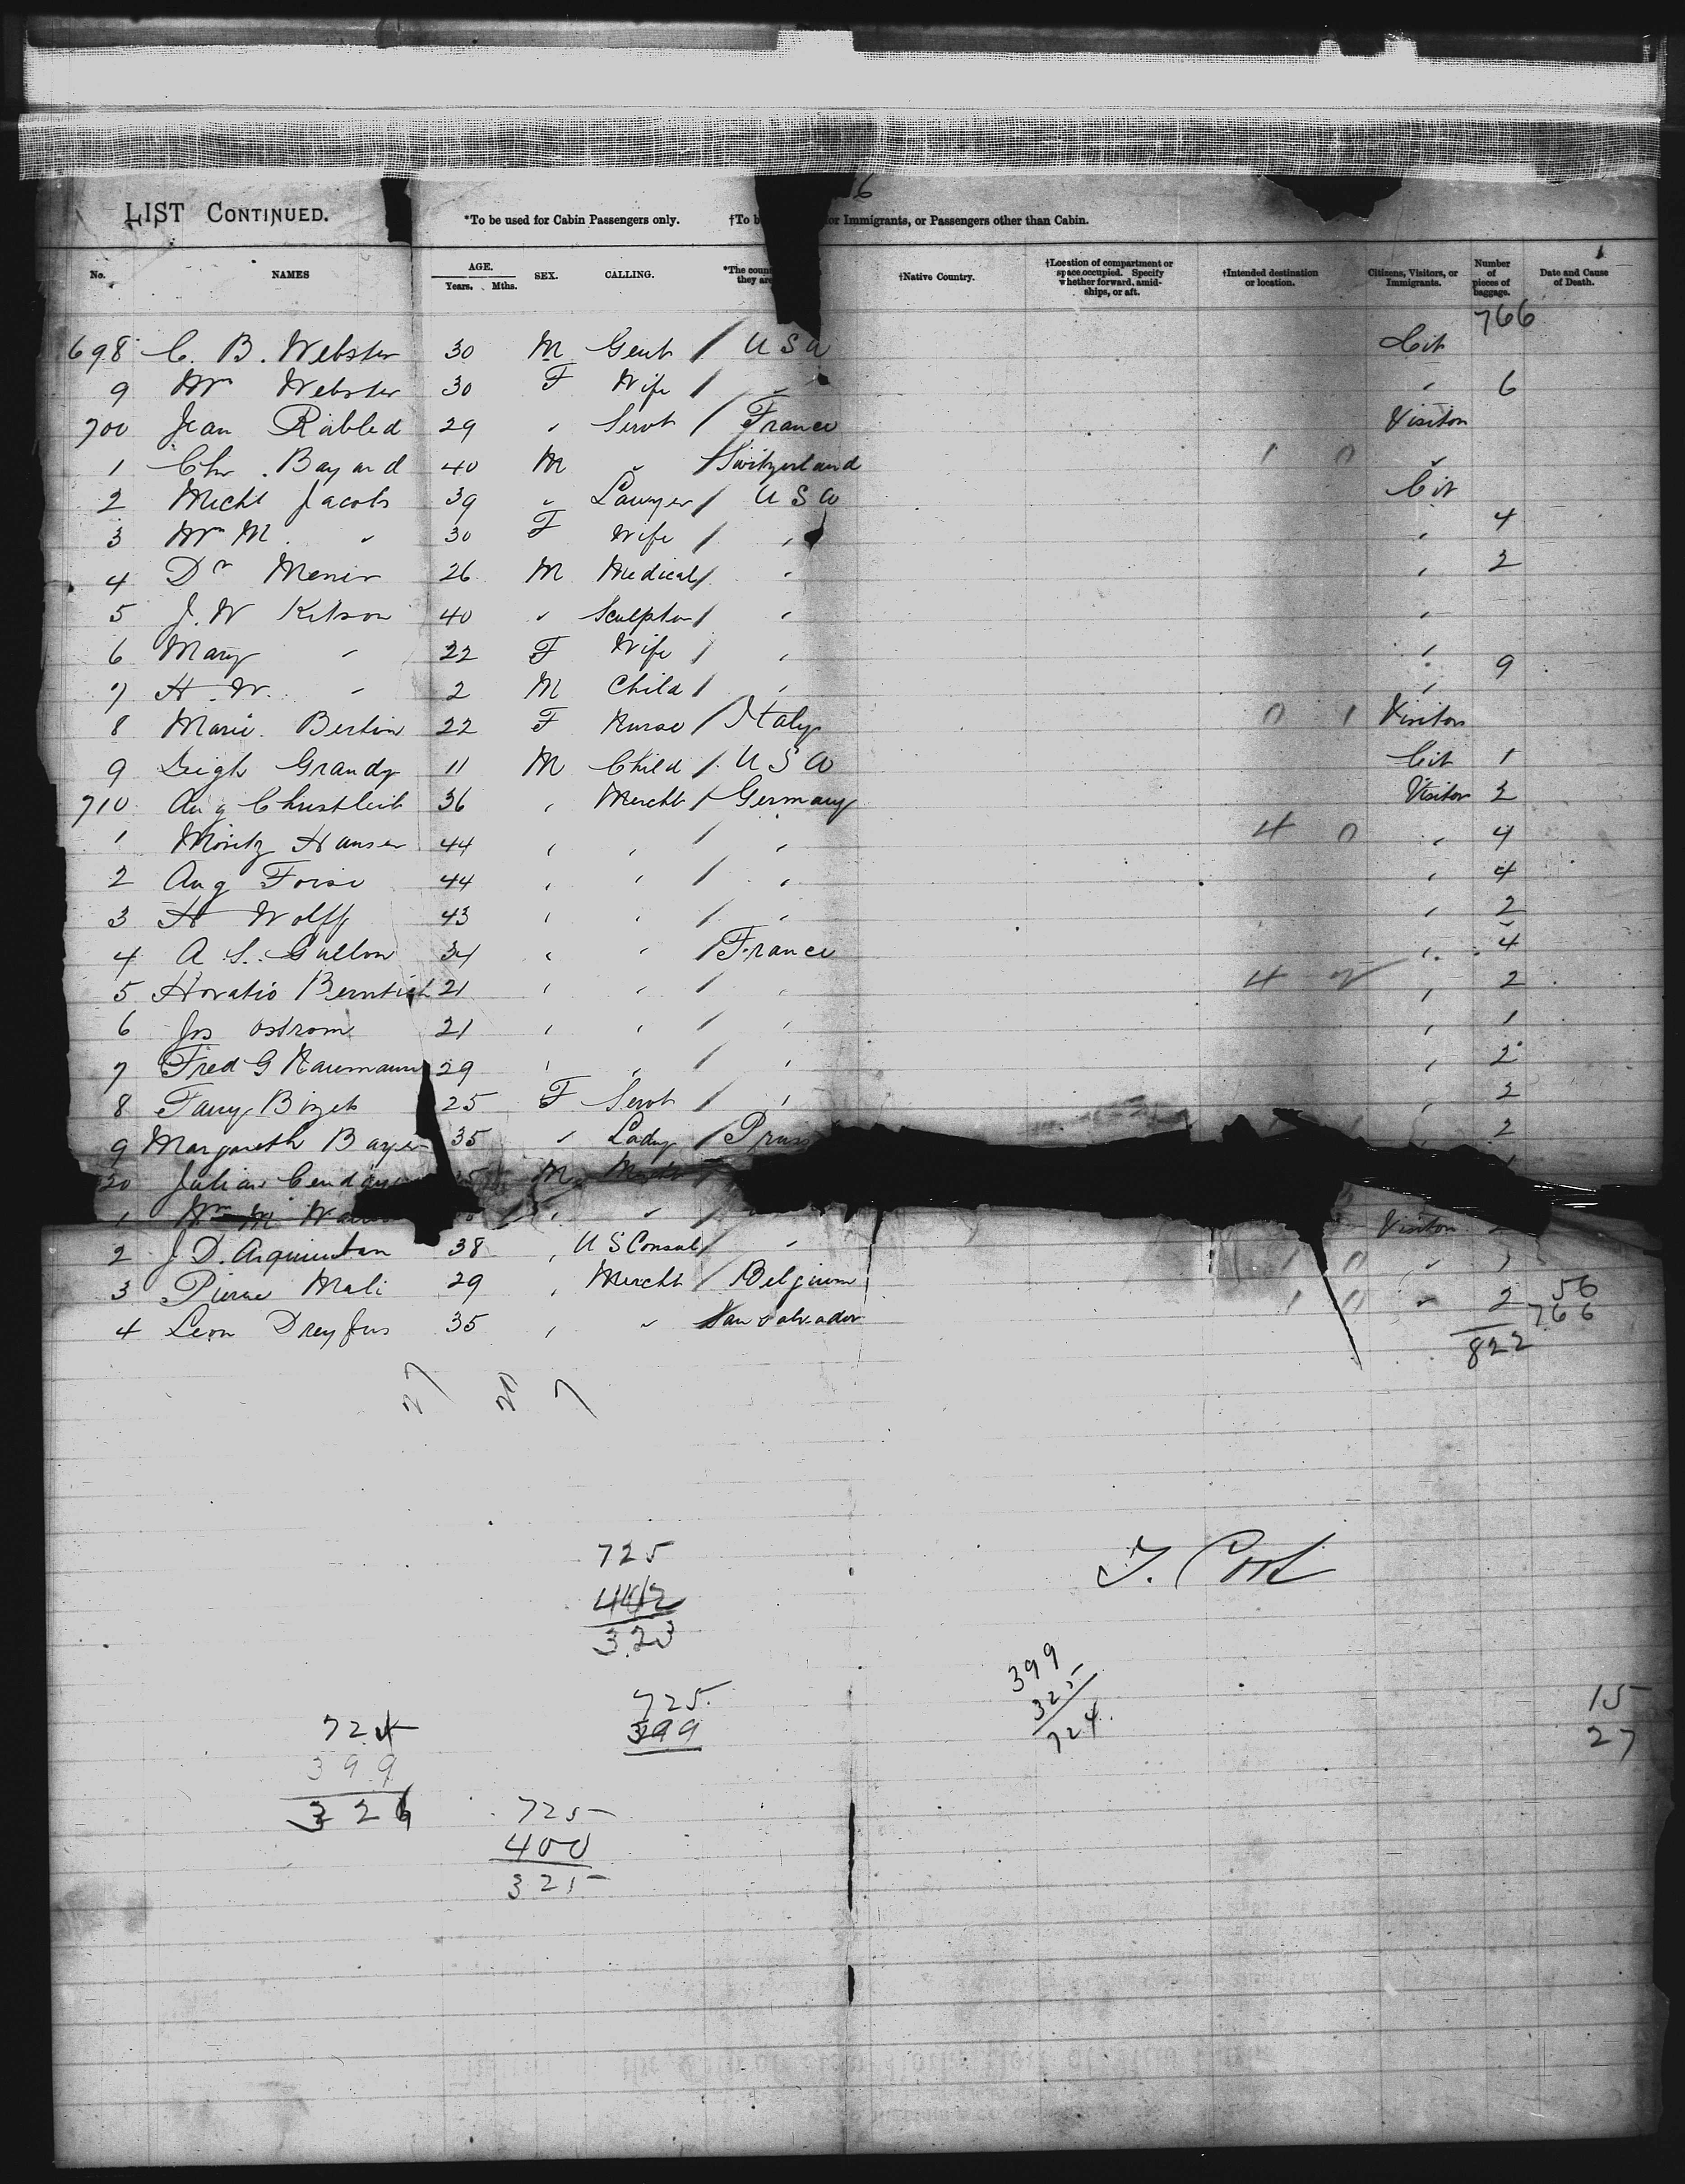 6
LIST CONTINUED.
*To be used for Cabin Passengers only. †To b or Immigrants, or Passengers other than Cabin.
No. NAMES AGE. Years. Mths. SEX. CALLING. *The coun they are †Native Country. †Location of compartment or space occupied. Specify whether forward, amidships, or aft. †Intended destination or location. Citizens, Visitors, or Immigrants. Number of pieces of baggage. Date and Cause of Death.
766
698 C. B. Webster 30 M Gent / U S A Cit
9 Mrs Webster 30 F Wife / " " 6
700 Jean Rabled 29 " Servt / France Visitor
1 Chr. Bayard 40 M " / Switzerland 1 0 "
2 Michl Jacobs 39 " Lawyer / U S A Cit
3 Mrs M. " 30 F Wife / " " 4
4 Dr Menir 26 M Medical / " " 2
5 J. W Kitson 40 " Sculptor / " "
6 Mary " 22 F Wife / " "
7 H. W. " 2 M Child / " " 9
8 Marie Bertin 22 F Nurse / Italy 0 1 Visitor
9 Leigh Grandy 11 M Child / U S A Cit 1
710 Aug Christlieb 36 " Mercht / Germany Visitor 2
1 Moritz Hanser 44 " " / " 4 0 " 4
2 Aug Foise 44 " " / " " 4
3 H Wolff 43 " " / " " 2
4 A S. Gullon 34 " " / France " 4
5 Horatio 21 " " / " 4 " 2
6 Jos Ostrom 21 " " / " " 1
7 Fred G Naumann 29 " " / " " 2
8 Fany Bizet 25 F Servt / " " 2
9 Margareth Bayer 35 " Lady / Pruss 2
20 Julian M
1 " " / Visitor 2
2 J. D. Arquimban 38 " U S Consul / " 1 0 " 1
3 Pierre Mali 29 " Mercht / Belgium 1 0 " 2 56
4 Leon Dreyfus 35 " " San Salvador 766
822
27 20 7
725
442
323
T. Cook
725
399
399
325
724
724
399
326
725
400
325
15
27